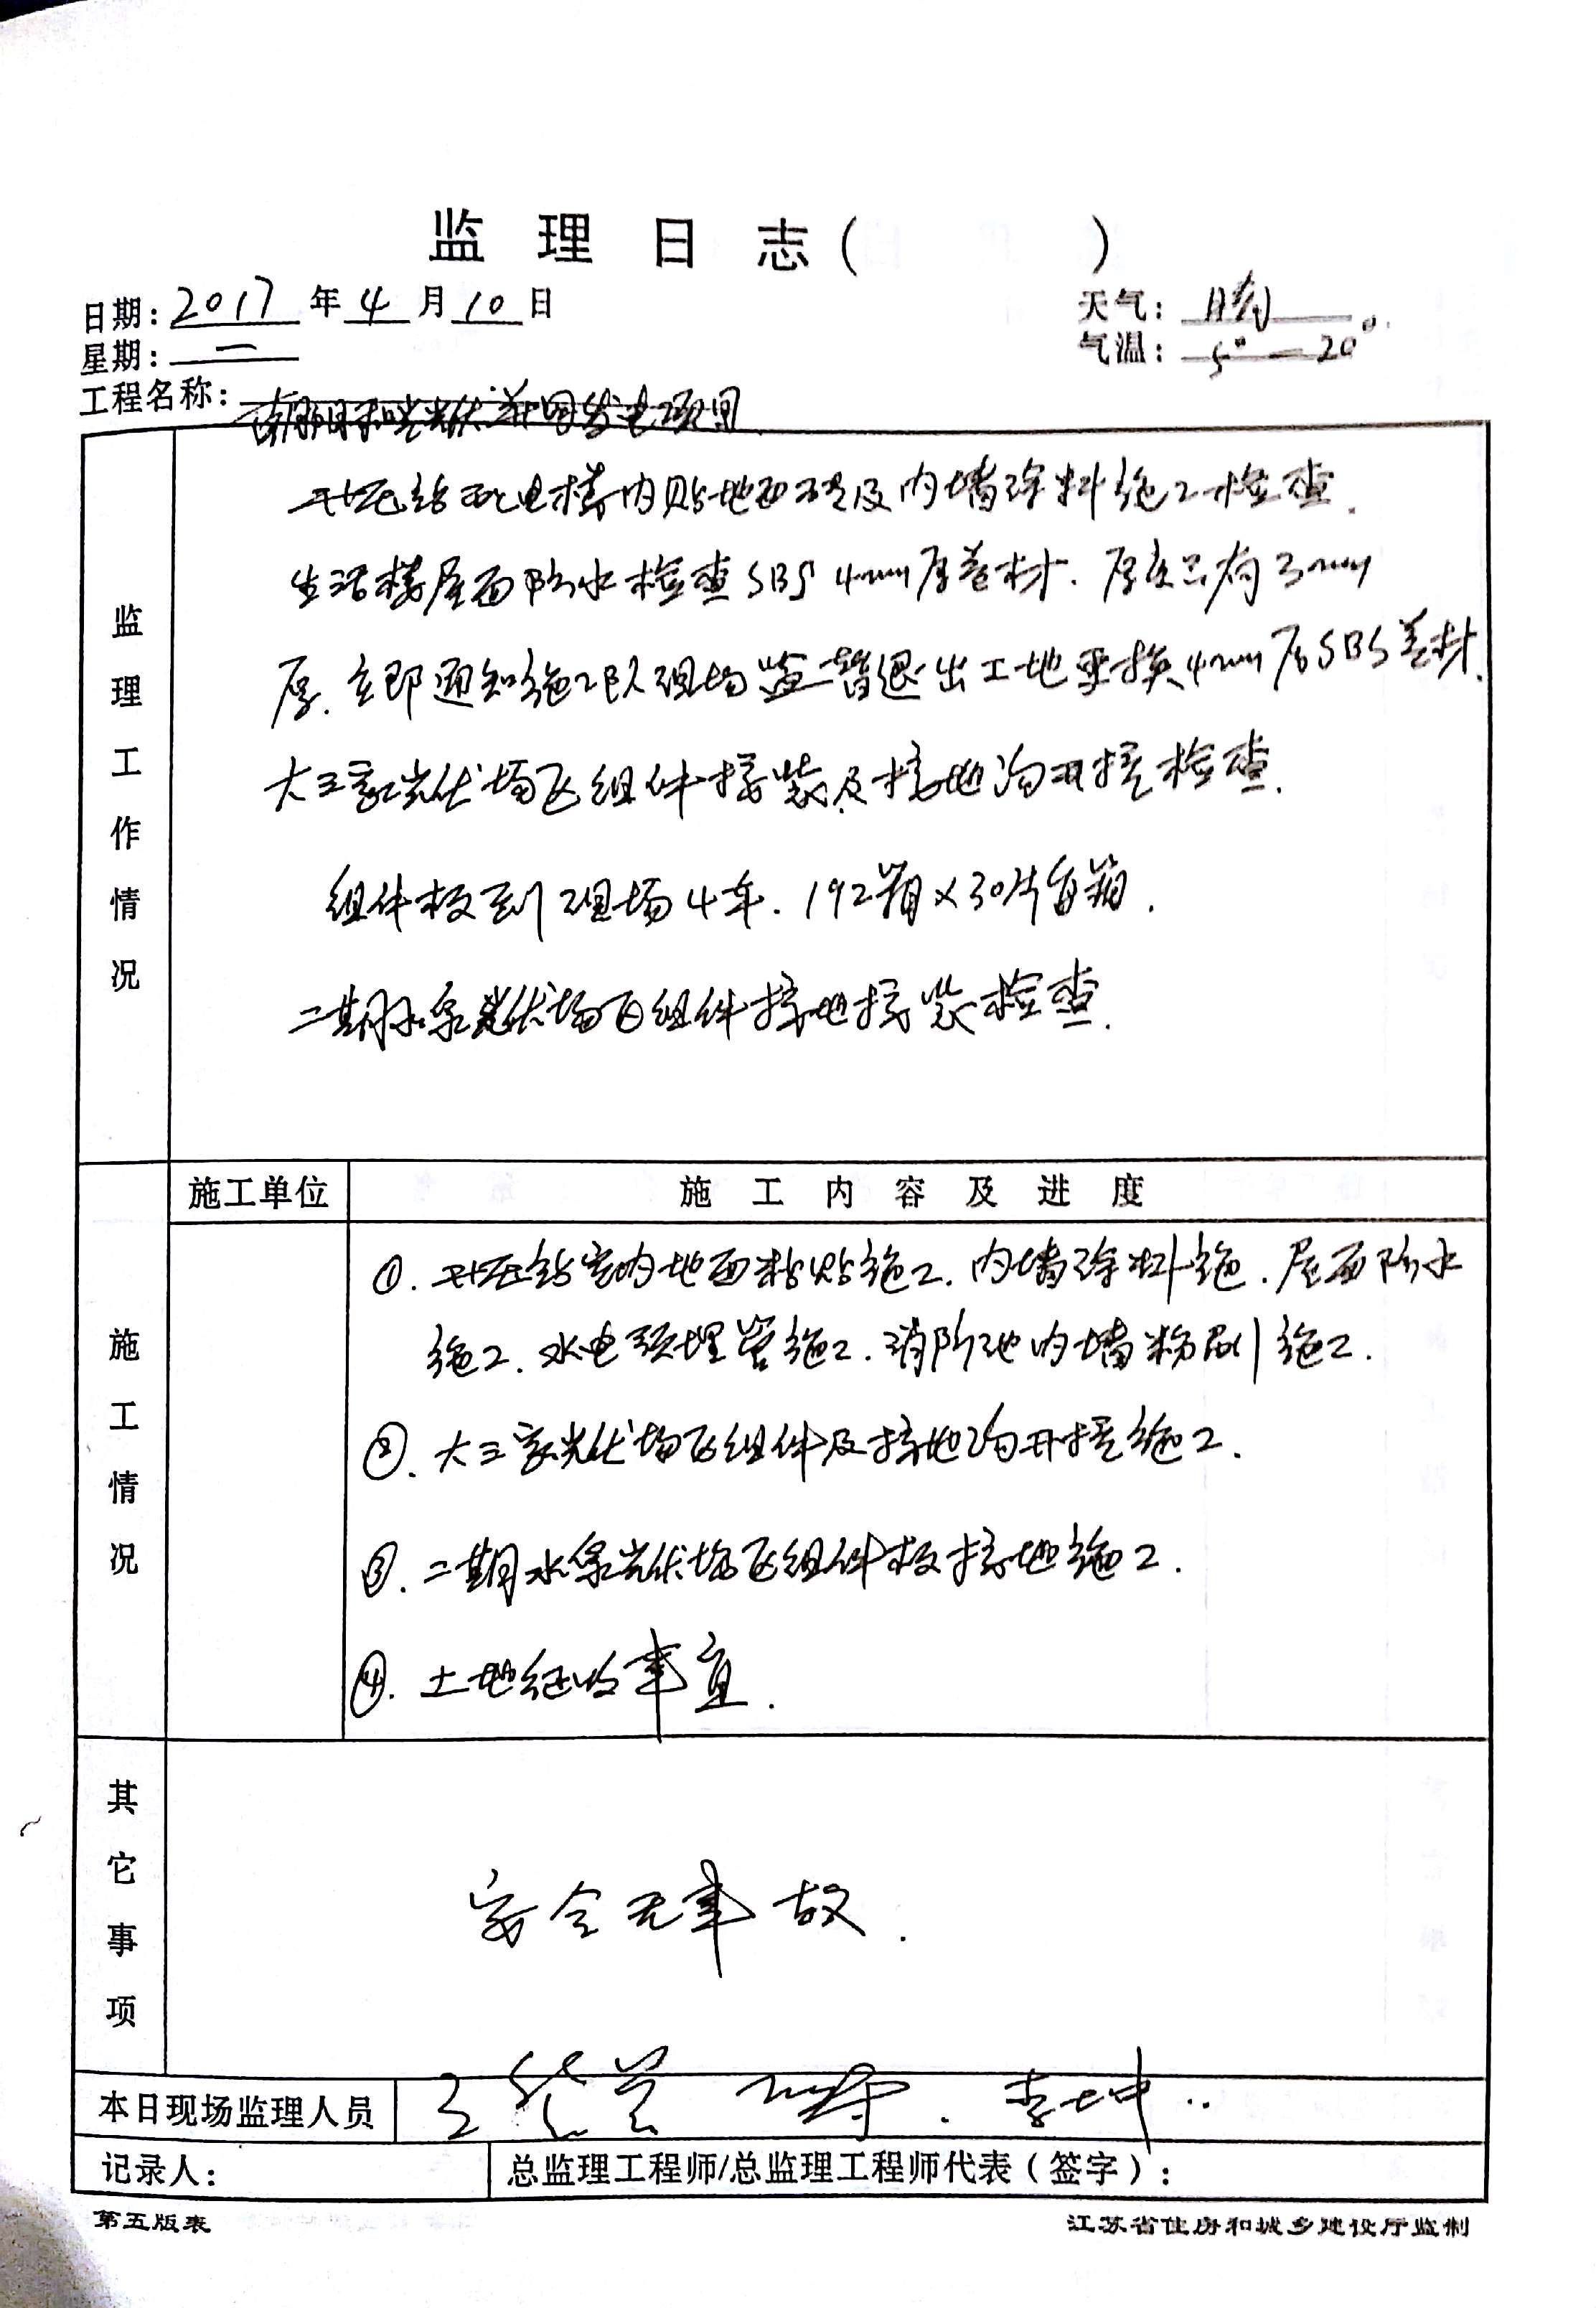 监理日志（ ）
日期：2017年4月10日 天气：晴
星期：一 气温：5°—20°
工程名称：光伏并网发电项目
监理工作情况
升压站配电楼内贴地面砖及内墙涂料施工检查.
生活楼屋面防水检查SBS 4mm厚卷材.厚度只有3mm
厚.立即通知施工队现场退出工地更换4mm厚SBS卷材.
大三家光伏场区组件接装及接地沟开挖检查.
组件板到现场4车.192箱×30片每箱.
二期水泉光伏场区组件接地接装检查.
施工单位 施工内容及进度
施工情况
①.升压站室内地面粘贴施工.内墙涂料施.屋面防水
施工.水电预埋管施工.消防池内墙粉刷施工.
②.大三家光伏场区组件及接地沟开挖施工.
③.二期水泉光伏场区组件板接地施工.
④.土地征收事宜.
其它事项
安全无事故.
本日现场监理人员 李坤
记录人： 总监理工程师/总监理工程师代表（签字）：
第五版表 江苏省住房和城乡建设厅监制